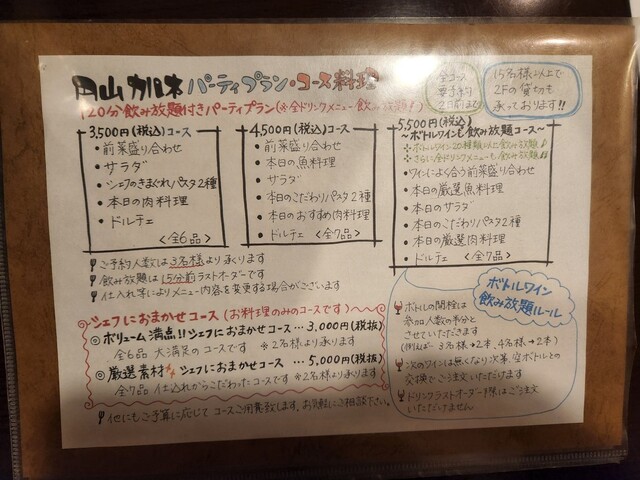 円山 加本 パーティプラン・コース料理
全コース
要予約
2日前まで
15名様以上で
2Fの貸切も
承っております!!
120分飲み放題付きパーティプラン(※全ドリンクメニュー飲み放題!)
3,500円(税込)コース
• 前菜盛り合わせ
• サラダ
• シェフのきまぐれパスタ2種
• 本日の肉料理
• ドルチェ
<全6品>
4,500円(税込)コース
• 前菜盛り合わせ
• 本日の魚料理
• サラダ
• 本日のこだわりパスタ2種
• 本日のおすすめ肉料理
• ドルチェ <全7品>
5,500円(税込)
~ボトルワインも飲み放題コース~
ボトルワイン20種類以上飲み放題♪
さらに全ドリンクメニューも飲み放題♪
• ワインによく合う前菜盛り合わせ
• 本日の厳選魚料理
• 本日のサラダ
• 本日のこだわりパスタ2種
• 本日の厳選肉料理
• ドルチェ <全7品>
ご予約人数は3名様より承ります
飲み放題は15分前ラストオーダーです
仕入れ等によりメニュー内容を変更する場合がございます
シェフにおまかせコース(お料理のみのコースです)
◎ボリューム満点!!シェフにおまかせコース…3,000円(税抜)
全6品 大満足のコースです ※2名様より承ります
◎厳選素材なシェフにおまかせコース…5,000円(税抜)
全7品 仕入れからこだわったコースです ※2名様より承ります
他にもご予算に応じてコースご用意致します。お気軽にご相談下さい。
ボトルワイン
飲み放題ルール
ボトルの開栓は
参加人数の半分と
させていただきます
(例えば… 3名様→2本、4名様→2本)
次のワインは無くなり次第、空ボトルとの
交換でご注文いただけます
ドリンクラストオーダー時はご注文
いただけません